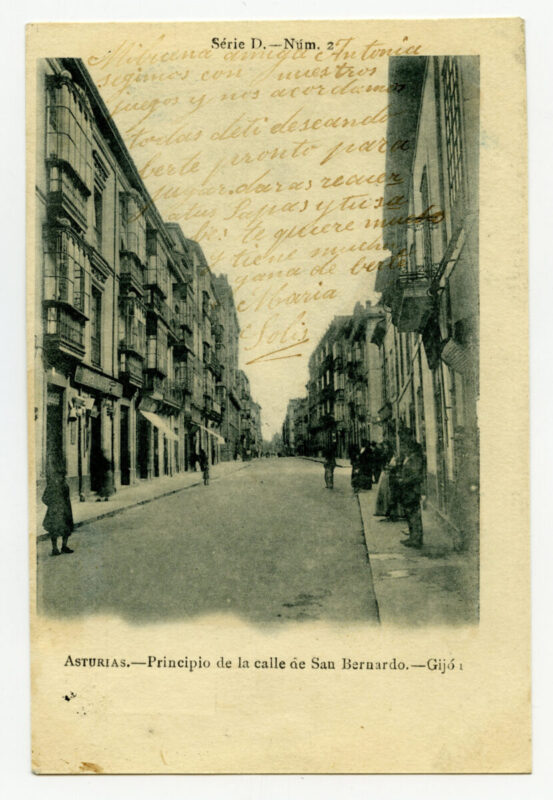 Série D.—Núm. 2
Mi buena amiga Antonia
segimos con nuestros
juegos y nos acordamos
todas de ti deseando
berte pronto para
jugar. daras recuer
a tus Papas y tu sa
bes te quiere mucho
y tiene mucha
gana de berte
Maria
Solis
ASTURIAS.—Principio de la calle de San Bernardo.—Gijó